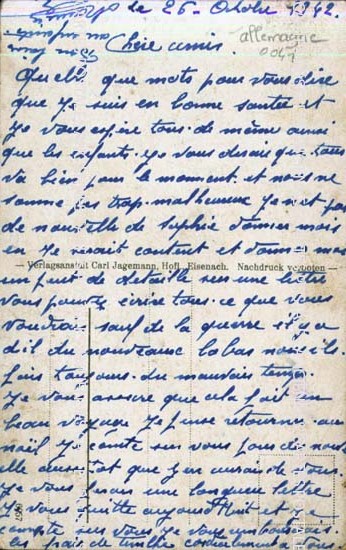 le 26 - Octobre 1942
allemagne
Chère amis
Quelq que mots pour vous dire
que je suis en bonne santée et
je vous espère tous de même ainsi
que les enfants. je vous dirais que tous
va bien pour le moment et nous ne
somme pas trop malheureux je n'et pas
de nouvelle de Sophie donner mois
en je serait contant et donner moi
— Verlagsanstalt Carl Jagemann, Hofl. Eisenach. Nachdruck verboten —
un peut de detaille sur une lettre
vous pouvez écrire tous ce que vous
voudrais sauf de la guerre il y a
d il du nouveaux labas nous ils
fais toujours du mauvais temps.
Je vous assure que cela fait un
beau voyage je pense retourner au
noël je compte sur vous pour de nouv
elle aussitot que j'en aurais de vous.
je vous ferais une longueu lettre
je vous quitte aujourd'hui et je
compte sur vous je vous embrasses
les frais de timbre